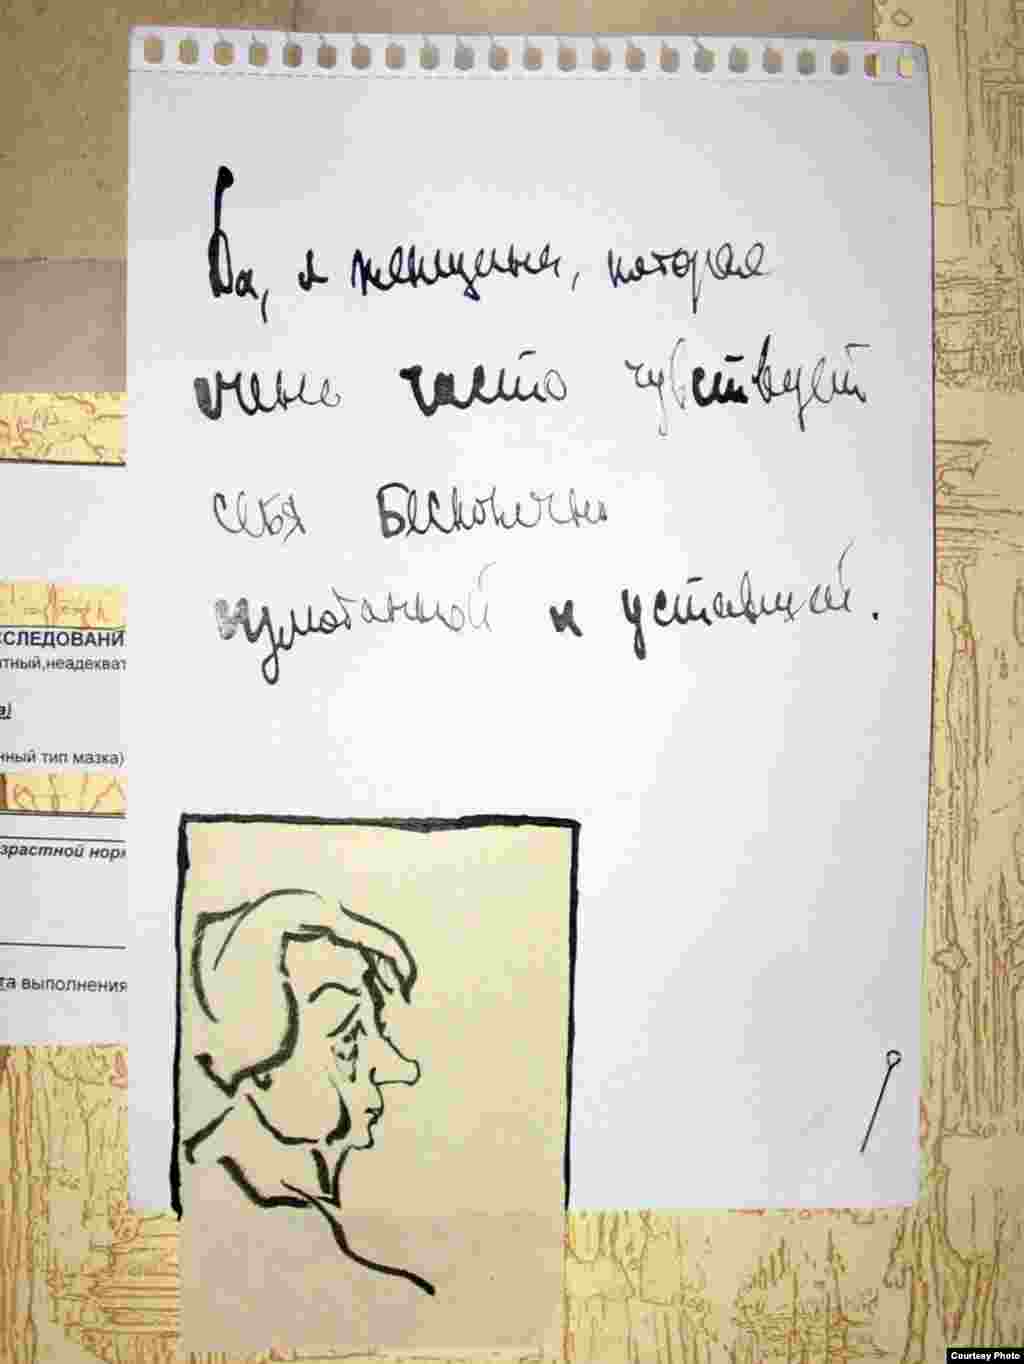 Да, я женщина, которая
очень часто чувствует
себя Бесконечно
измотанной и уставшей.
ССЛЕДОВАНИ
тный,неадекват
а)
нный тип мазка)
зрастной норм
та выполнения
Courtesy Photo